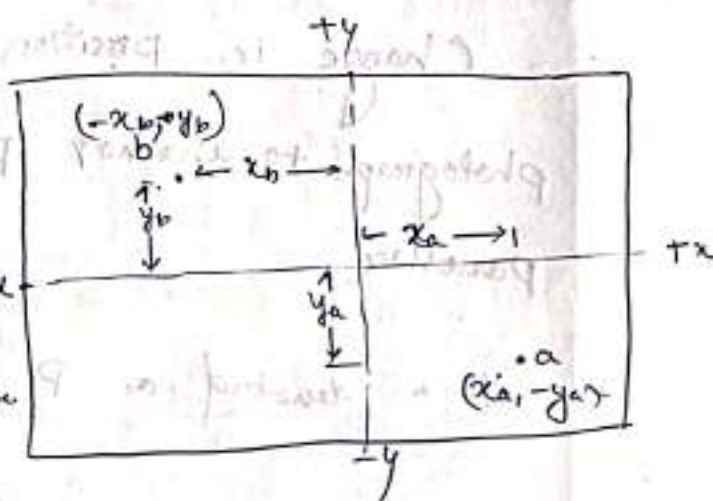 +y
(-xb, +yb)
b
xb
yb
xa
+x
x
ya
a
(xa, -ya)
-y